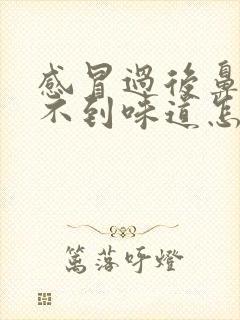 感冒過後鼻
不到味道怎
篱落呼燈